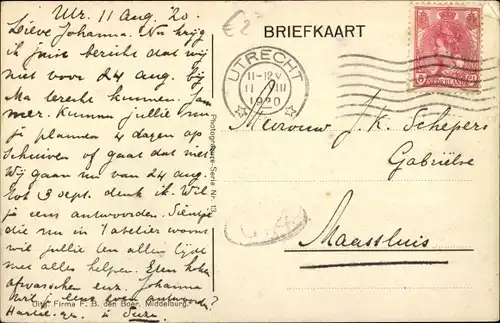 Utr. 11 Aug. '20.
Lieve Johanna. Nu krijg
ik juist bericht dat wij
niet voor 24 aug. bij
Ma terecht kunnen. Jam
mer. Kunnen jullie nu
je plannen 4 dagen op
schuiven of gaat dat niet
Wij gaan nu van 24 aug.
tot 3 sept. denk ik. Wil
je eens antwoorden.
die nu in woont
wil jullie ten allen tijde
met alles helpen. Eten koken
afwasschen enz. Johanna
wil je eens even antwoorden?
Hartel. gr. v. Suze.
€2
BRIEFKAART
UTRECHT
11-12 V
11 VIII
1920
NEDERLAND
5
Mevrouw J. K. Schepers
Gabriëlse
Maassluis
Photogravure-Serie Nr. 13.
Uitg. Firma F. B. den Boer, Middelburg.